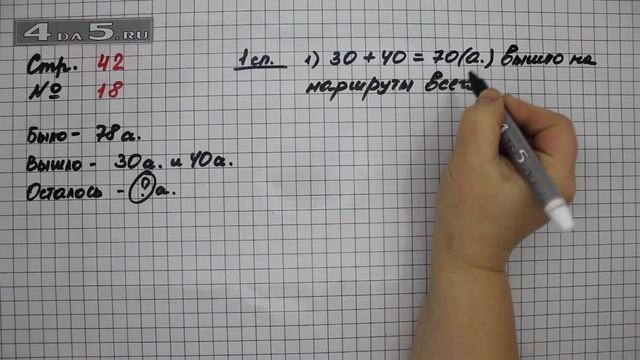 4DA5.RU
Стр. 42
№ 18
Было - 78 а.
Вышло - 30 а. и 40 а.
Осталось - ? а.
1 сп. 1) 30 + 40 = 70 (а.) вышло на
маршруты всего
4 DA 5.